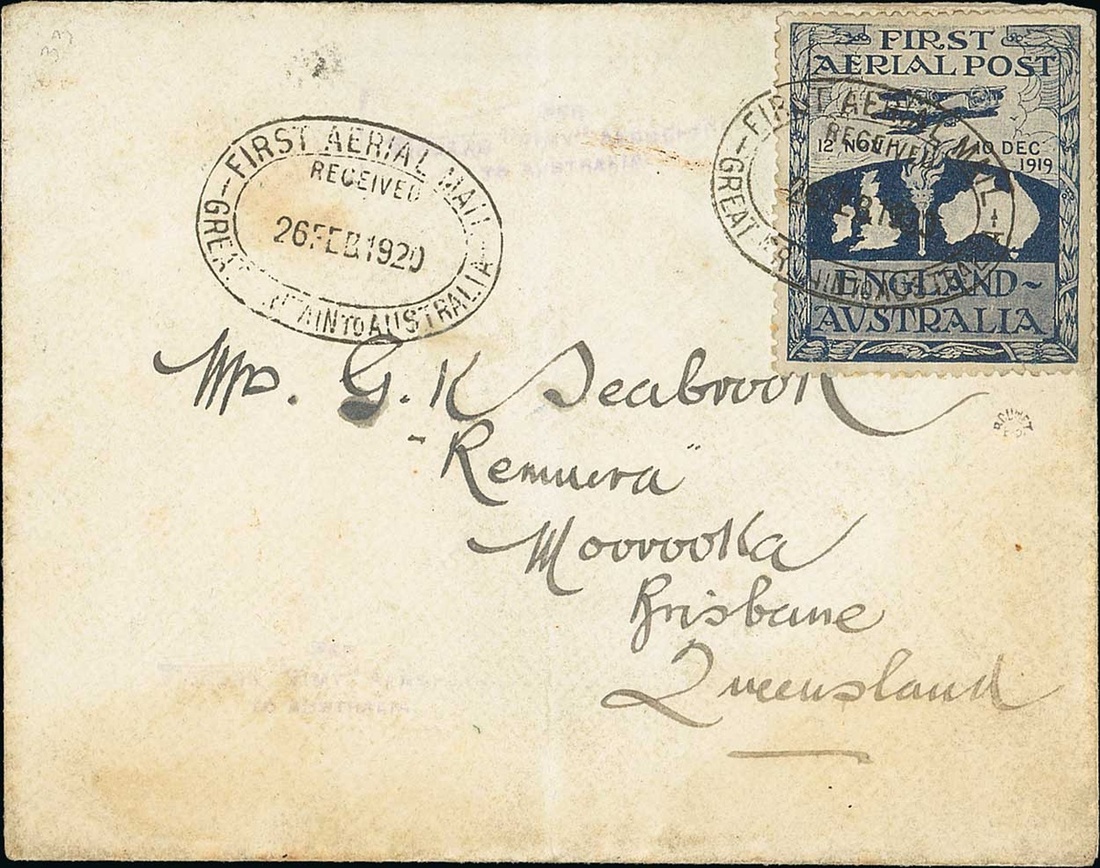 FIRST
AERIAL POST
12 NOV 10 DEC
1919
ENGLAND~
AUSTRALIA
-FIRST AERIAL MAIL-
RECEIVED
26 FEB 1920
GREAT BRITAIN TO AUSTRALIA
-FIRST AERIAL MAIL-
RECEIVED
26 FEB 1920
GREAT BRITAIN TO AUSTRALIA
Mr. G. K Seabrook
"Remuera"
Moorooka
Brisbane
Queensland